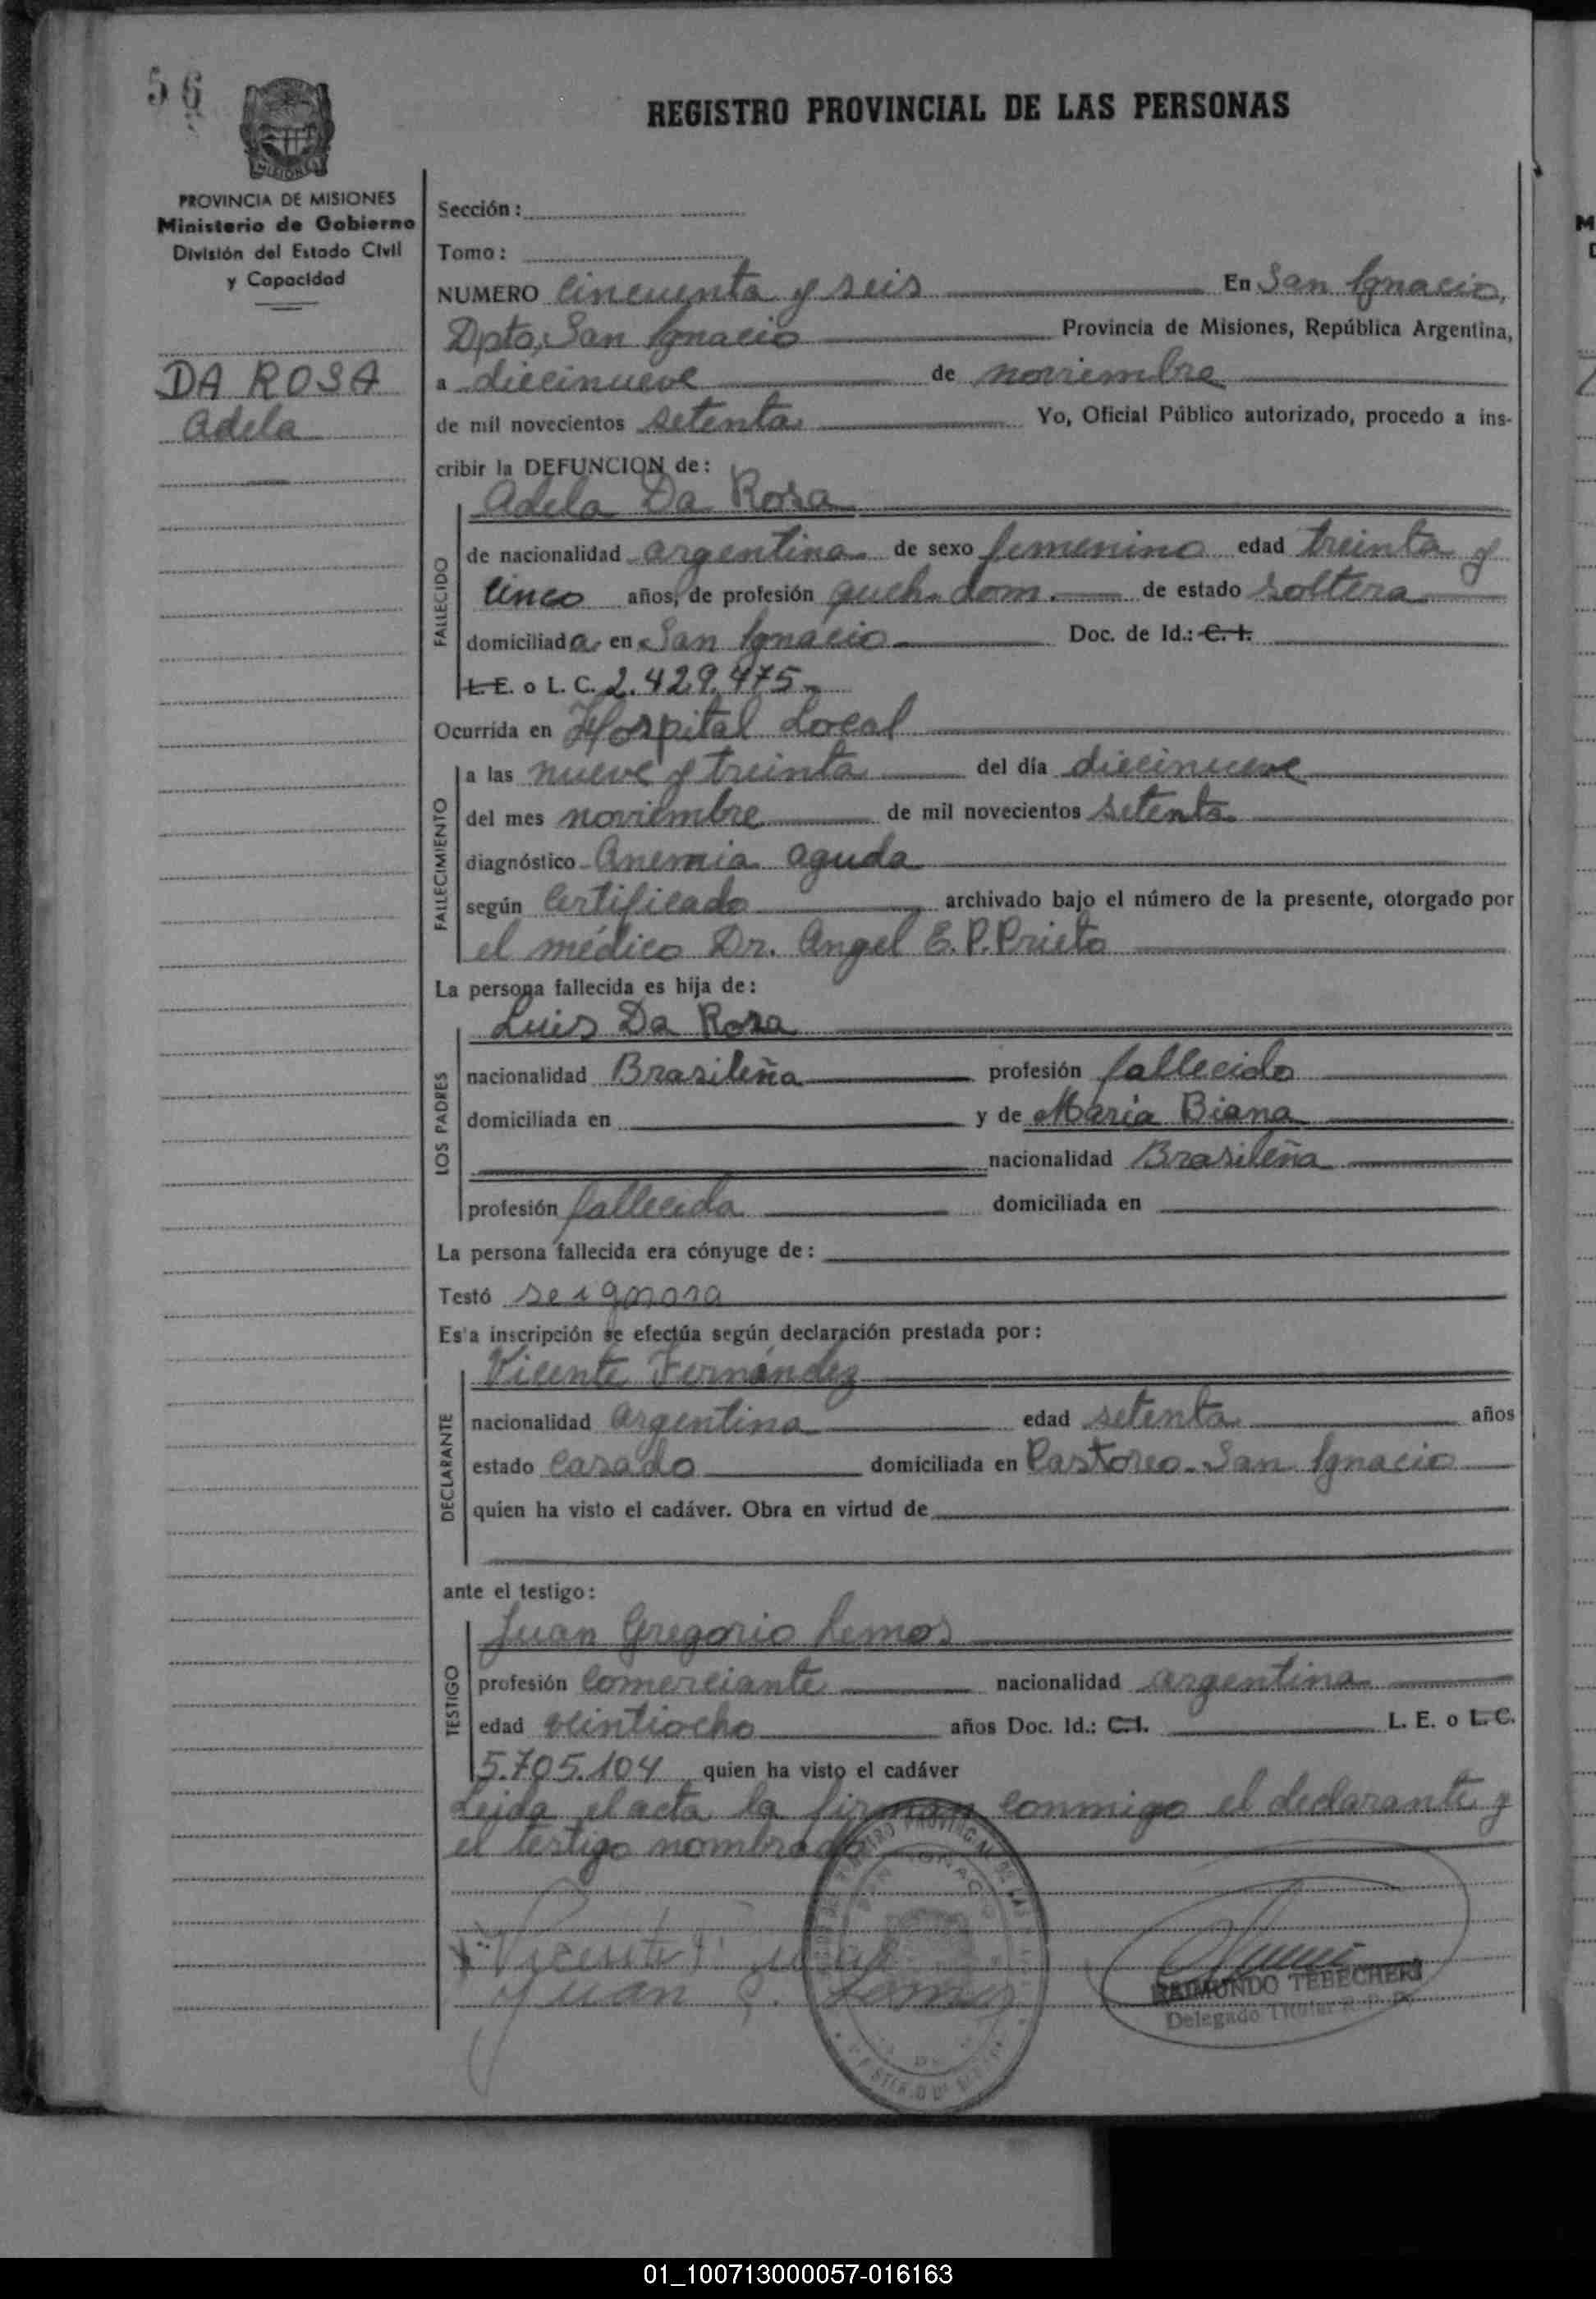 56
REGISTRO PROVINCIAL DE LAS PERSONAS
MISIONES
PROVINCIA DE MISIONES
Ministerio de Gobierno
División del Estado Civil
y Capacidad
DA ROSA
Adela
Sección:
Tomo:
NUMERO Cincuenta y seis En San Ignacio,
Dpto, San Ignacio Provincia de Misiones, República Argentina,
a diecinueve de noviembre
de mil novecientos setenta Yo, Oficial Público autorizado, procedo a ins-
cribir la DEFUNCION de:
Adela Da Rosa
FALLECIDO
de nacionalidad argentina de sexo femenino edad treinta y
cinco años, de profesión queh. dom. de estado soltera
domiciliada en San Ignacio Doc. de Id.: C. I.
L.E. o L. C. 2.429.475
Ocurrida en Hospital Local
FALLECIMIENTO
a las nueve y treinta del día diecinueve
del mes noviembre de mil novecientos setenta
diagnóstico Anemia aguda
según Certificado archivado bajo el número de la presente, otorgado por
el médico Dr. Angel E. P. Prieto
La persona fallecida es hija de:
LOS PADRES
Luis Da Rosa
nacionalidad Brasileña profesión fallecido
domiciliada en y de María Biana
nacionalidad Brasileña
profesión fallecida domiciliada en
La persona fallecida era cónyuge de:
Testó se ignora
Es'a inscripción se efectúa según declaración prestada por:
DECLARANTE
Vicente Fernández
nacionalidad argentina edad setenta años
estado Casado domiciliada en Pastoreo - San Ignacio
quien ha visto el cadáver. Obra en virtud de
ante el testigo:
TESTIGO
Juan Gregorio Lemos
profesión Comerciante nacionalidad argentina
edad veintiocho años Doc. Id.: C.I. L. E. o L.C.
5.705.104 quien ha visto el cadáver
Leida el acta la firman conmigo el declarante y
el testigo nombrado
Vicente
Juan G. Lemos
RAIMUNDO TEBECHERI
Delegado Titular
01_100713000057-016163